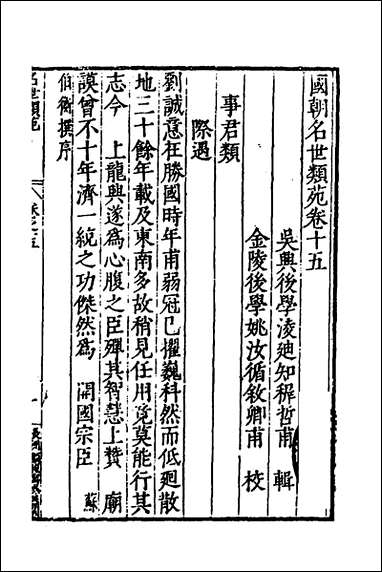 國朝名世類苑卷十五
吳興後學淩廸知穉哲甫 輯
金陵後學姚汝循敘卿甫 校
事君類
際遇
劉誠意在勝國時年甫弱冠已擢巍科然而低迴散
地三十餘年載及東南多故稍見任用竟莫能行其
志今 上龍興遂為心腹之臣殫其智慧上贊 廟
謨曾不十年濟一統之功傑然為 開國宗臣 蘇
伯衡撰序
名世類苑